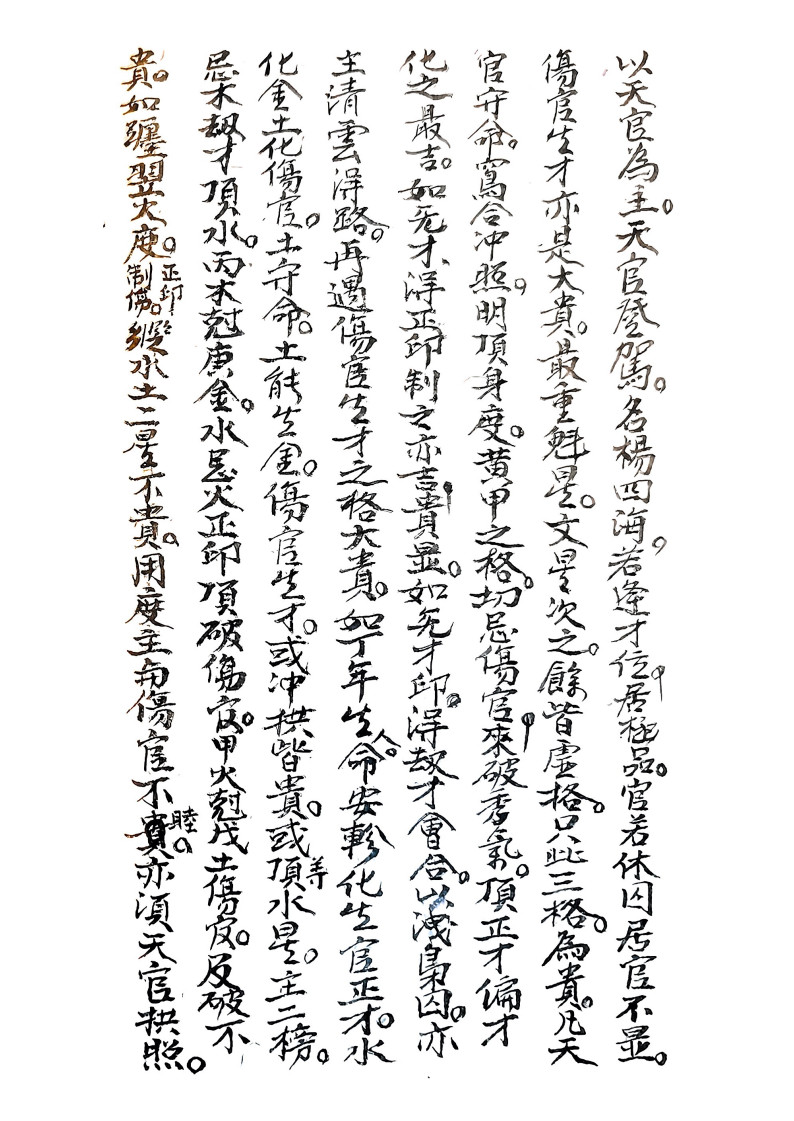 以天官為主。天官登駕。名楊四海。若逢才位。居極品。官若休囚居官不显。
傷官生才亦是大貴。最重魁星。文星次之。餘皆虛格。只此三格。為貴。凡天
官守命。寫合冲照。明頂身度。黄甲之格。切忌傷官來破秀氣。頂正才偏才
化之最吉。如旡才。得正印制之亦吉貴显。如旡才印。得刼才會合。以洩梟囚。亦
主清雲得路。再遇傷官生才之格大貴。如丁年生人。命安軫化生官正才。水
化金土化傷官。土守命。土能生金。傷官生才。或冲拱皆貴。或頂水星。主二榜。
忌木刼才頂水。丙木尅庚金。水忌火正印頂破傷官。甲火尅戊土傷官。反破不
貴。如纏翌火度。正印制傷。縱水土二星不貴。用度主與傷官不睦。亦須天官拱照。